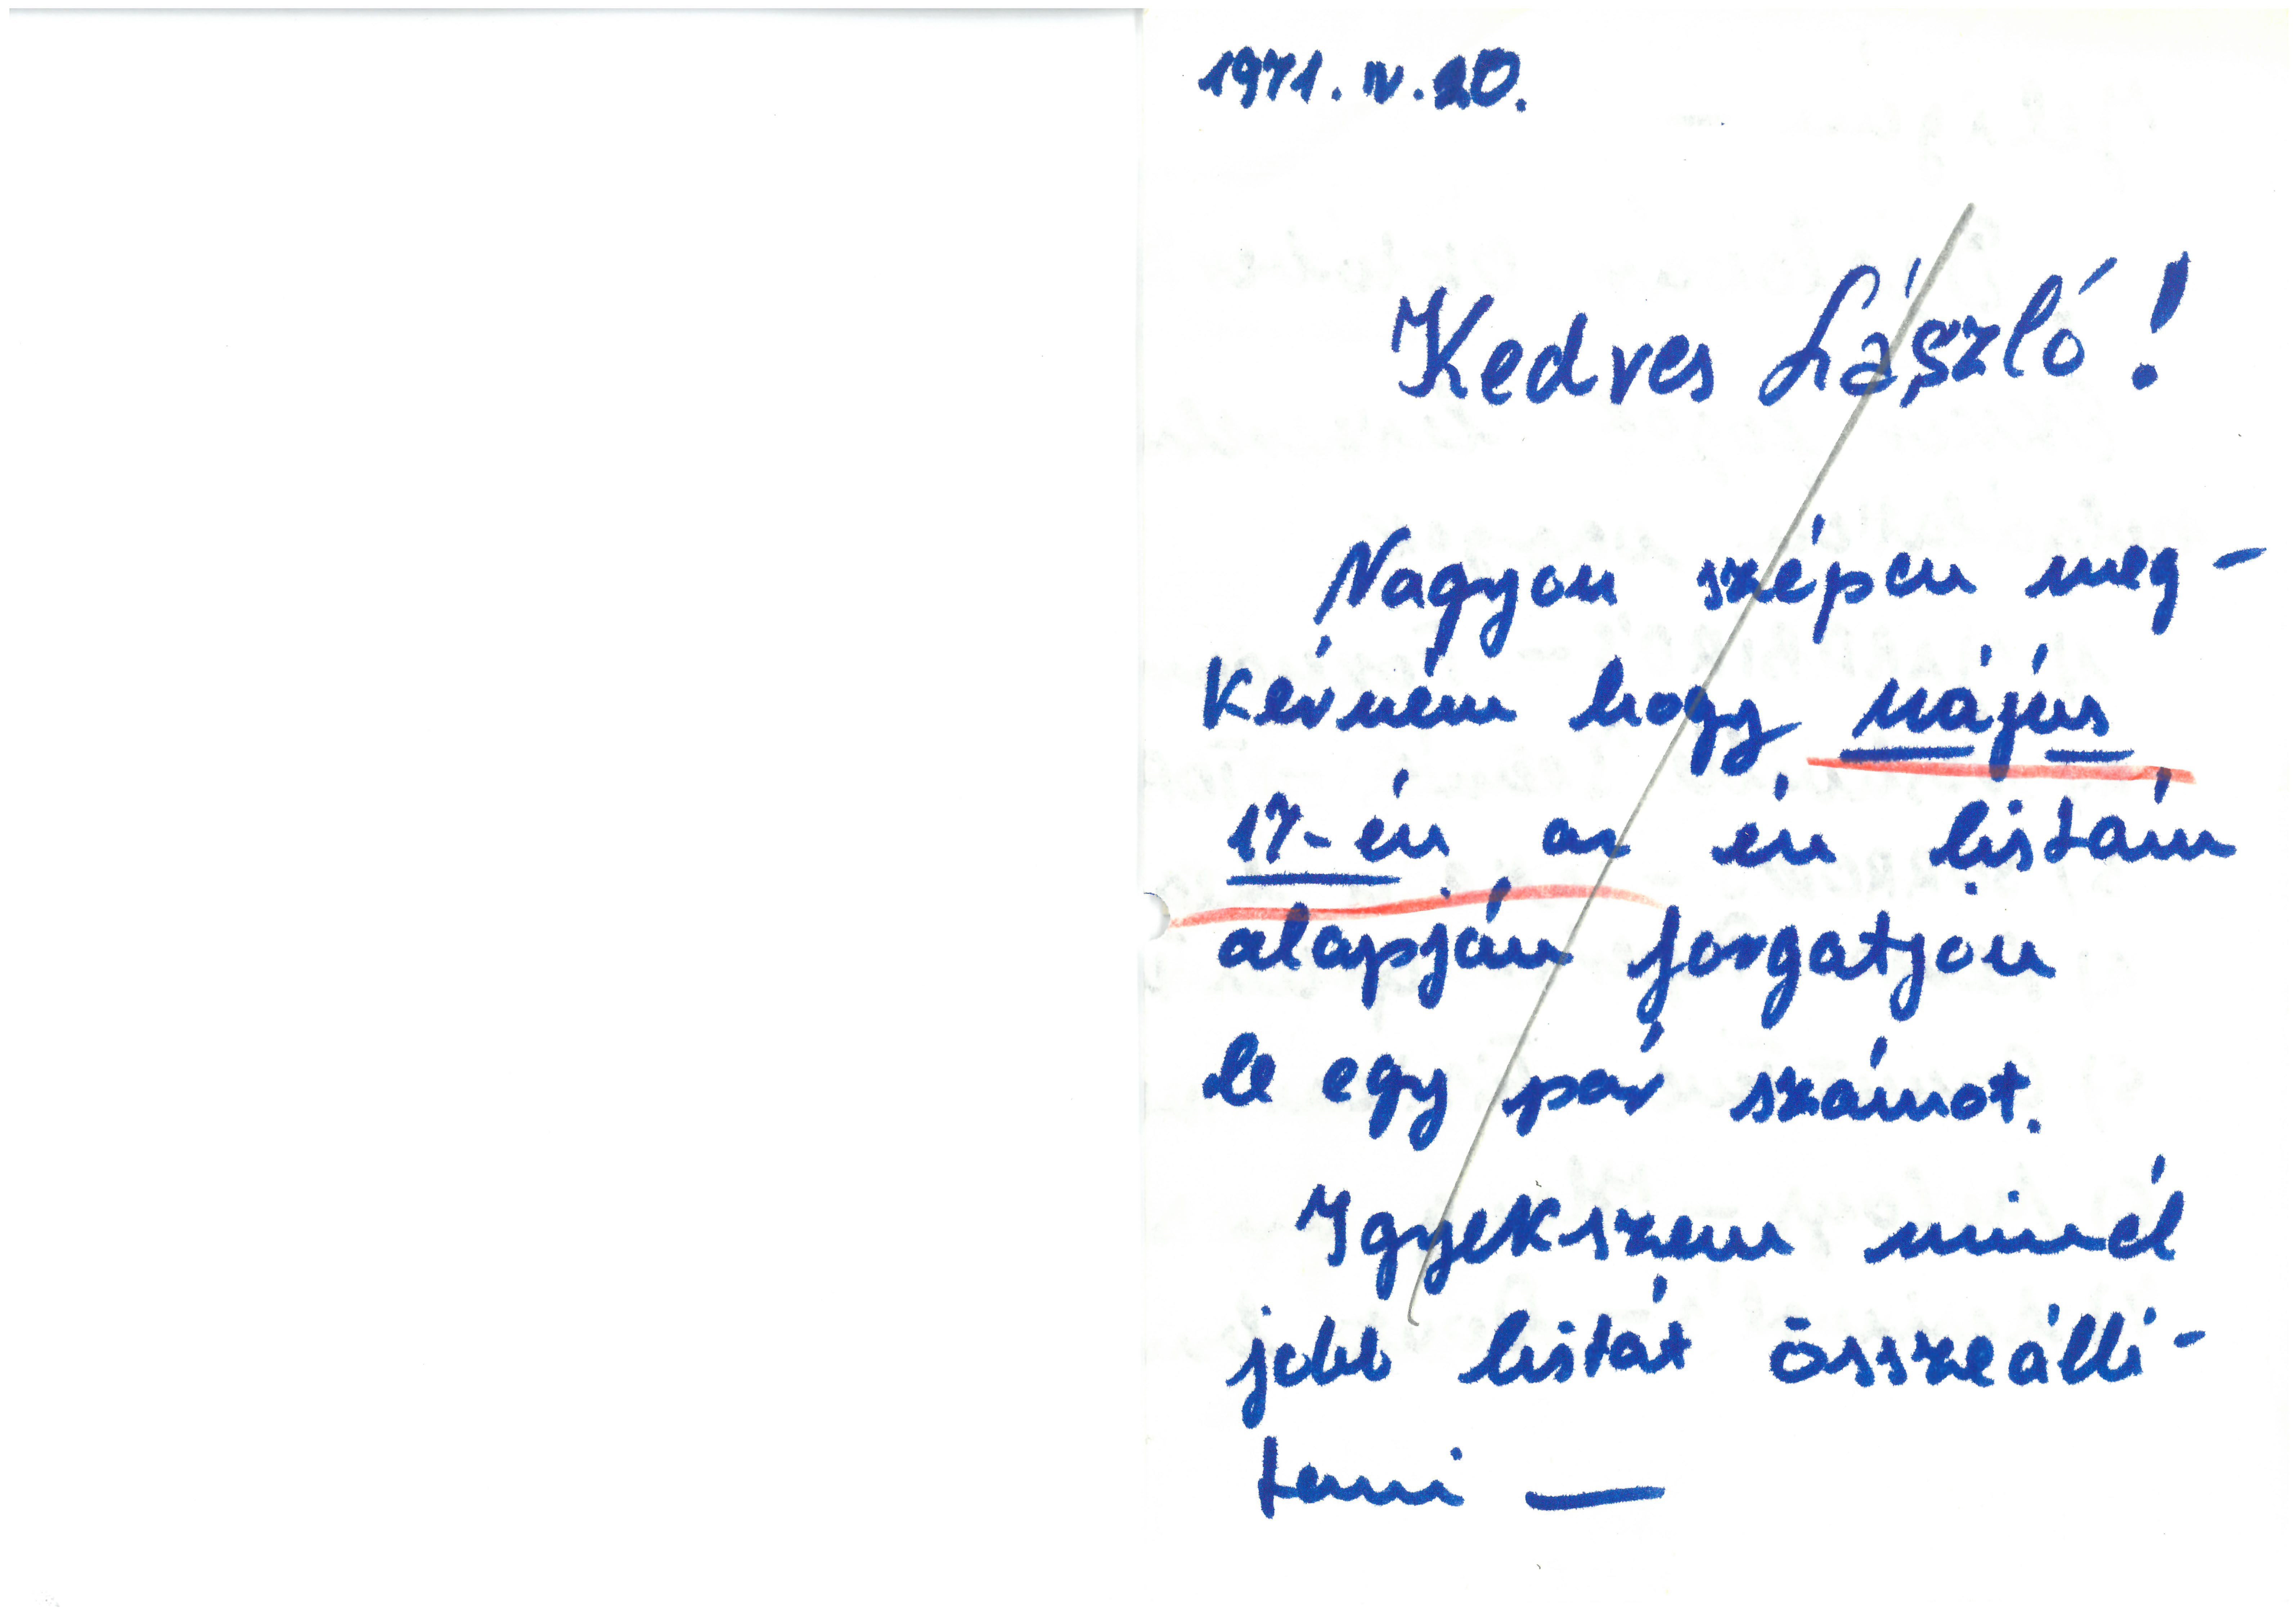 1971. IV. 20.
Kedves László!
Nagyon szépen meg-
kérném hogy május
17-én az én listám
alapján forgatjon
le egy pár számot.
Igyekszem minél
jobb listát összeálli-
tani —